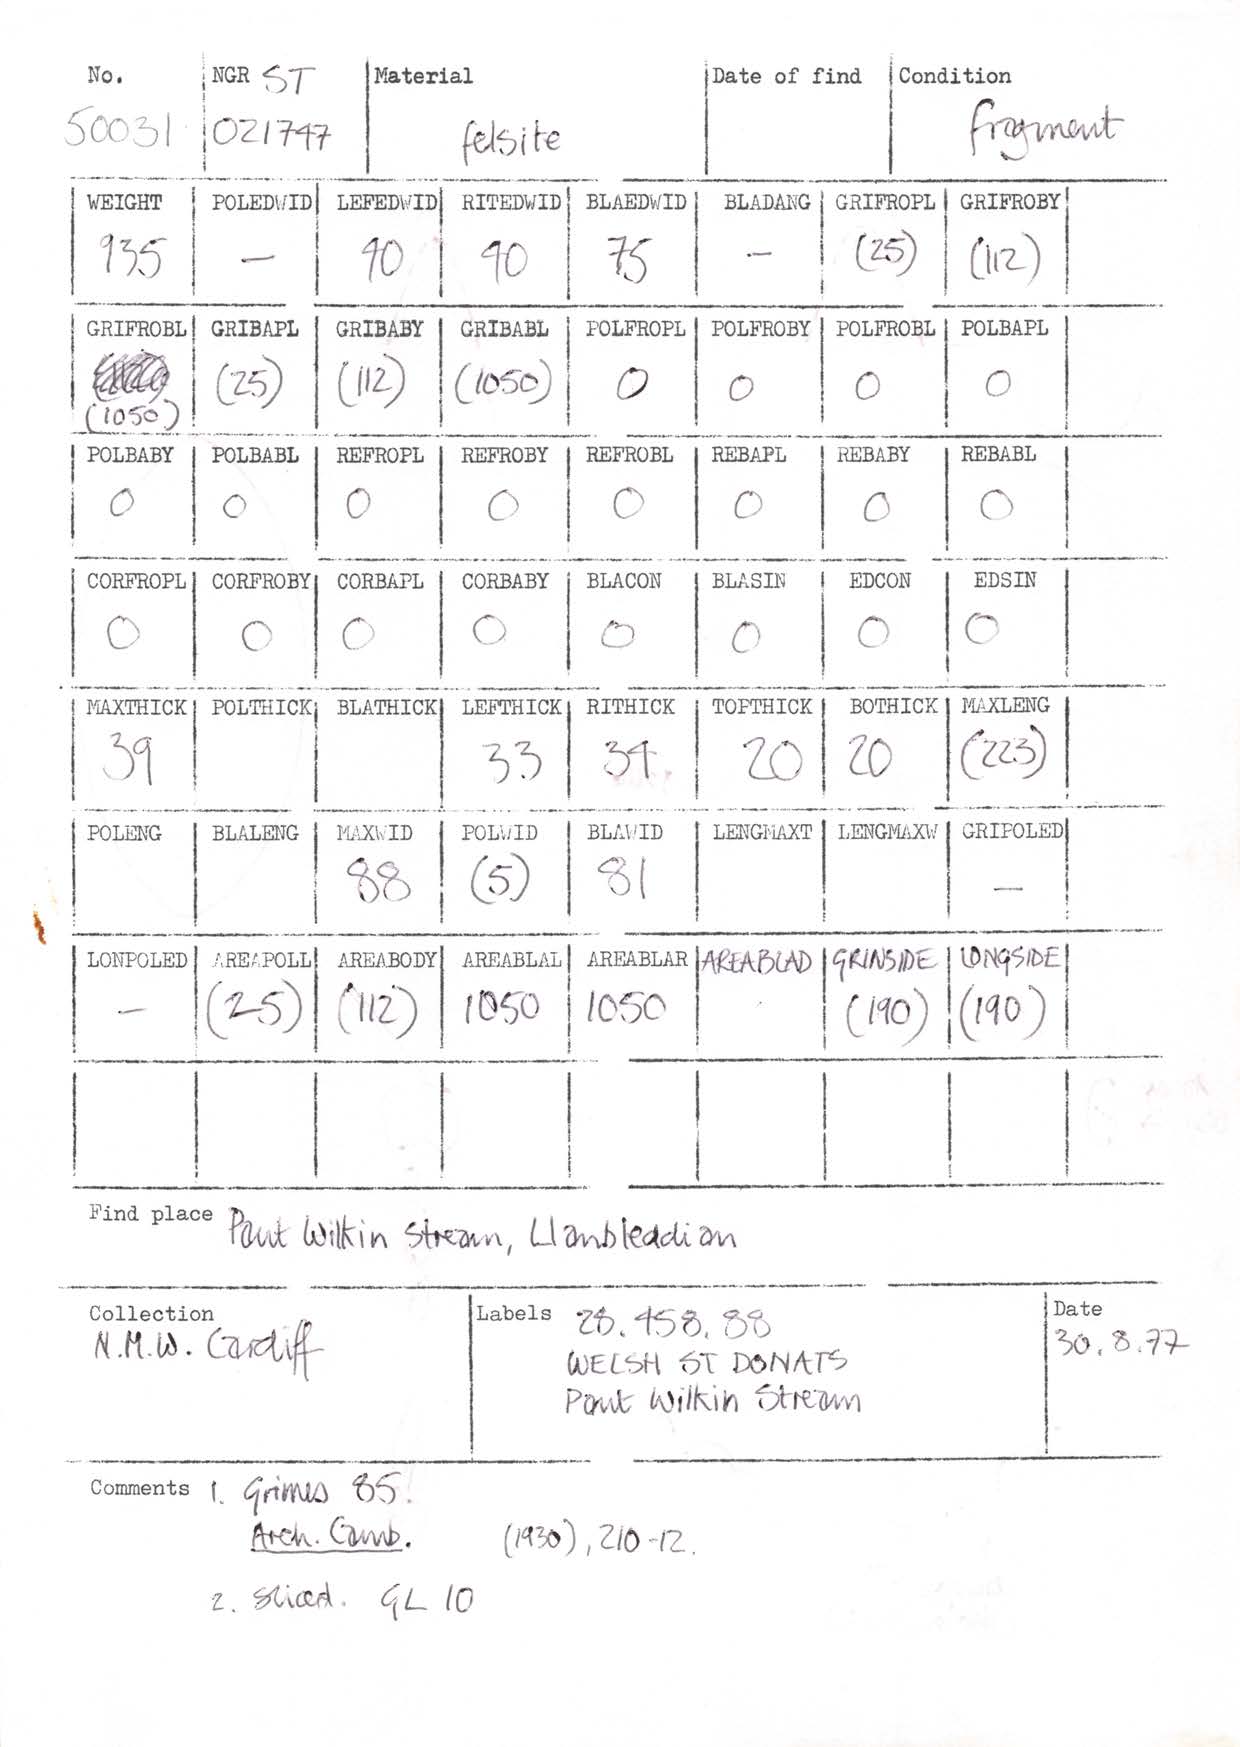 No. NGR ST Material Date of find Condition
50031 021747 felsite fragment
WEIGHT POLEDWID LEFEDWID RITEDWID BLAEDWID BLADANG GRIFROPL GRIFROBY
935 — 40 40 75 — (25) (112)
GRIFROBL GRIBAPL GRIBABY GRIBABL POLFROPL POLFROBY POLFROBL POLBAPL
(1050) (25) (112) (1050) 0 0 0 0
POLBABY POLBABL REFROPL REFROBY REFROBL REBAPL REBABY REBABL
0 0 0 0 0 0 0 0
CORFROPL CORFROBY CORBAPL CORBABY BLACON BLASIN EDCON EDSIN
0 0 0 0 0 0 0 0
MAXTHICK POLTHICK BLATHICK LEFTHICK RITHICK TOPTHICK BOTHICK MAXLENG
39 33 34 20 20 (223)
POLENG BLALENG MAXWID POLWID BLAWID LENGMAXT LENGMAXW GRIPOLED
88 (5) 81 —
LONPOLED AREAPOLL AREABODY AREABLAL AREABLAR AREABLAD GRINSIDE LONGSIDE
— (25) (112) 1050 1050 (190) (190)
Find place Pant Wilkin Stream, Llanbleddian
Collection Labels 28.458.88 Date
N.M.W. Cardiff WELSH ST DONATS 30.8.77
Pant Wilkin Stream
Comments 1. Grimes 85.
Arch. Camb. (1930), 210-12.
2. Sliced. GL 10